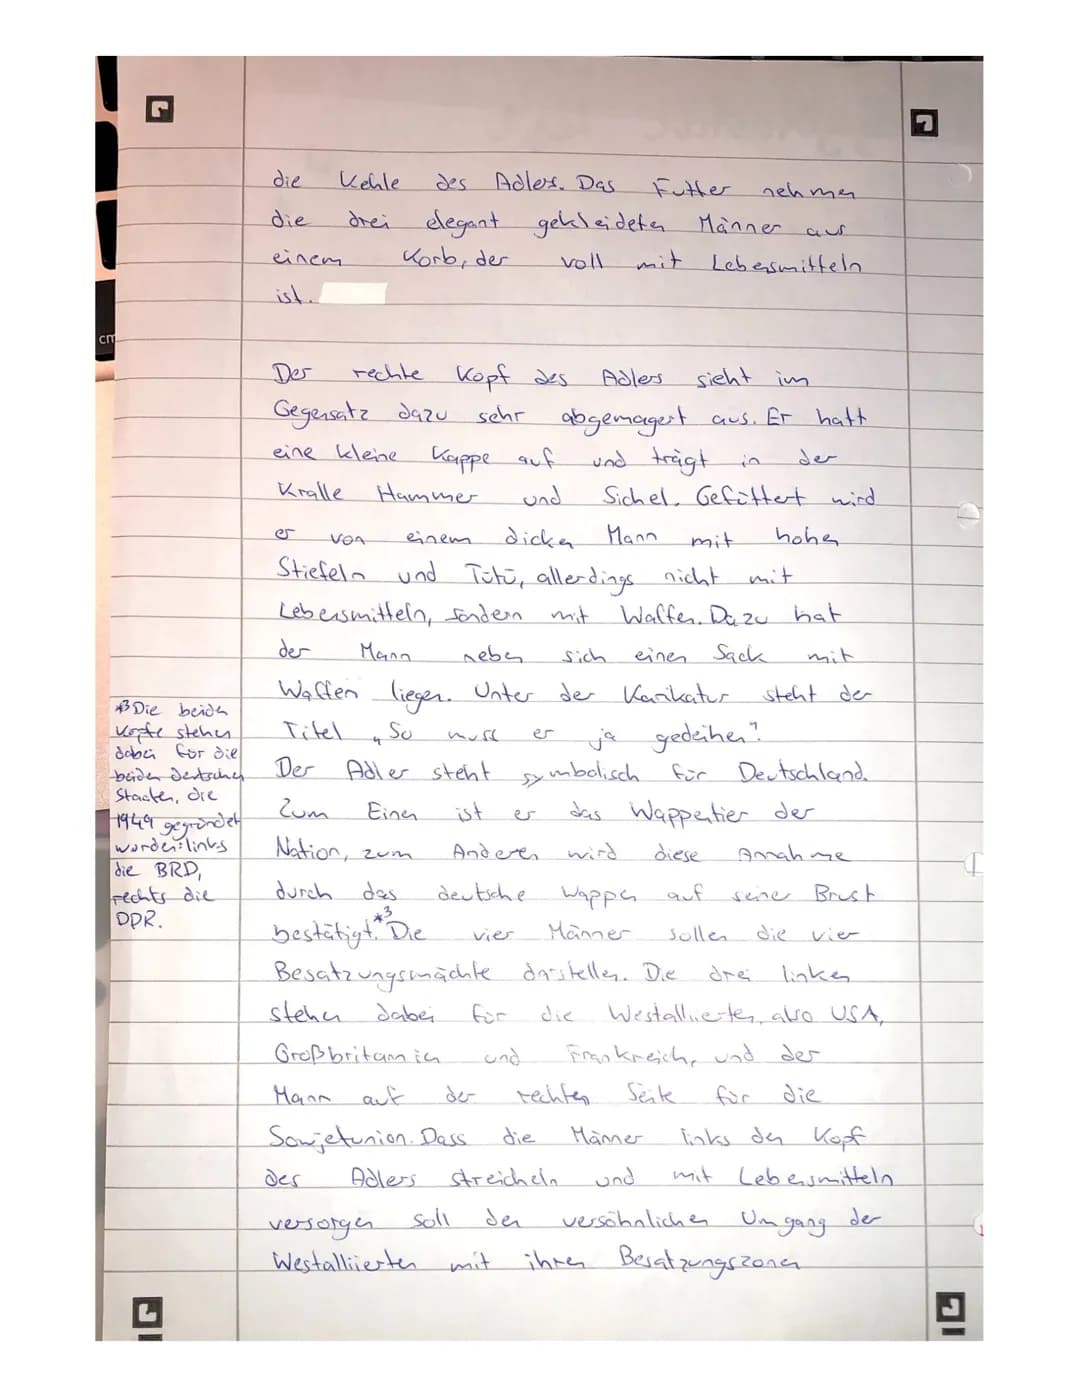 die Kehle des Adlers. Das Futter nehmen
die drei elegant gekleideten Männer aus
einem Korb, der voll mit Lebensmitteln
ist.
cm
Der rechte Kopf des Adlers sieht im
Gegensatz dazu sehr abgemagert aus. Er hatt
eine kleine Kappe auf und trägt in der
Kralle Hammer und Sichel. Gefüttert wird
er von einem dicken Mann mit hohen
Stiefeln und Tütü, allerdings nicht mit
Lebensmitteln, sondern mit Waffen. Dazu hat
der Mann neben sich einen Sack mit
Waffen liegen. Unter der Karikatur steht der
Titel „So muss er ja gedeihen".
Der Adler steht symbolisch für Deutschland.
Zum Einen ist er das Wappentier der
Nation, zum Anderen wird diese Annahme
durch das deutsche Wappen auf seiner Brust
bestätigt.*3 Die vier Männer sollen die vier
Besatzungsmächte darstellen. Die drei linken
stehen dabei für die Westalliierten, also USA,
Großbritannien und Frankreich, und der
Mann auf der rechten Seite für die
Sowjetunion. Dass die Männer links den Kopf
des Adlers streicheln und mit Lebensmitteln
versorgen soll den versöhnlichen Umgang der
Westalliierten mit ihren Besatzungszonen
*3 Die beiden
Köpfe stehen
dabei für die
beiden deutschen
Staaten, die
1949 gegründet
wurden: links
die BRD,
rechts die
DDR.